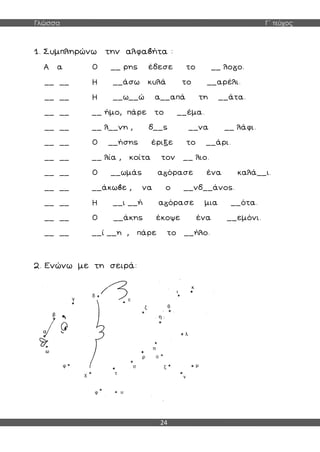 Γλώσσα Γ΄ τεύχος
1. Συμπληρώνω την αλφαβήτα :
Α α Ο __ ρης έδεσε το __ λογο.
__ __ Η __άσω κυλά το __αρέλι.
__ __ Η __ω__ώ α__απά τη __άτα.
__ __ __ ήμο, πάρε το __έμα.
__ __ __ λ__νη , δ__ς __να __ λάφι.
__ __ Ο __ήσης έριξε το __άρι.
__ __ __ λία , κοίτα τον __ λιο.
__ __ Ο __ωμάς αγόρασε ένα καλά__ι.
__ __ __άκωβε , να ο __νδ__άνος.
__ __ Η __ι __ή αγόρασε μια __ότα.
__ __ Ο __άκης έκοψε ένα __εμόνι.
__ __ __ί __η , πάρε το __ήλο.
2. Ενώνω με τη σειρά:
24